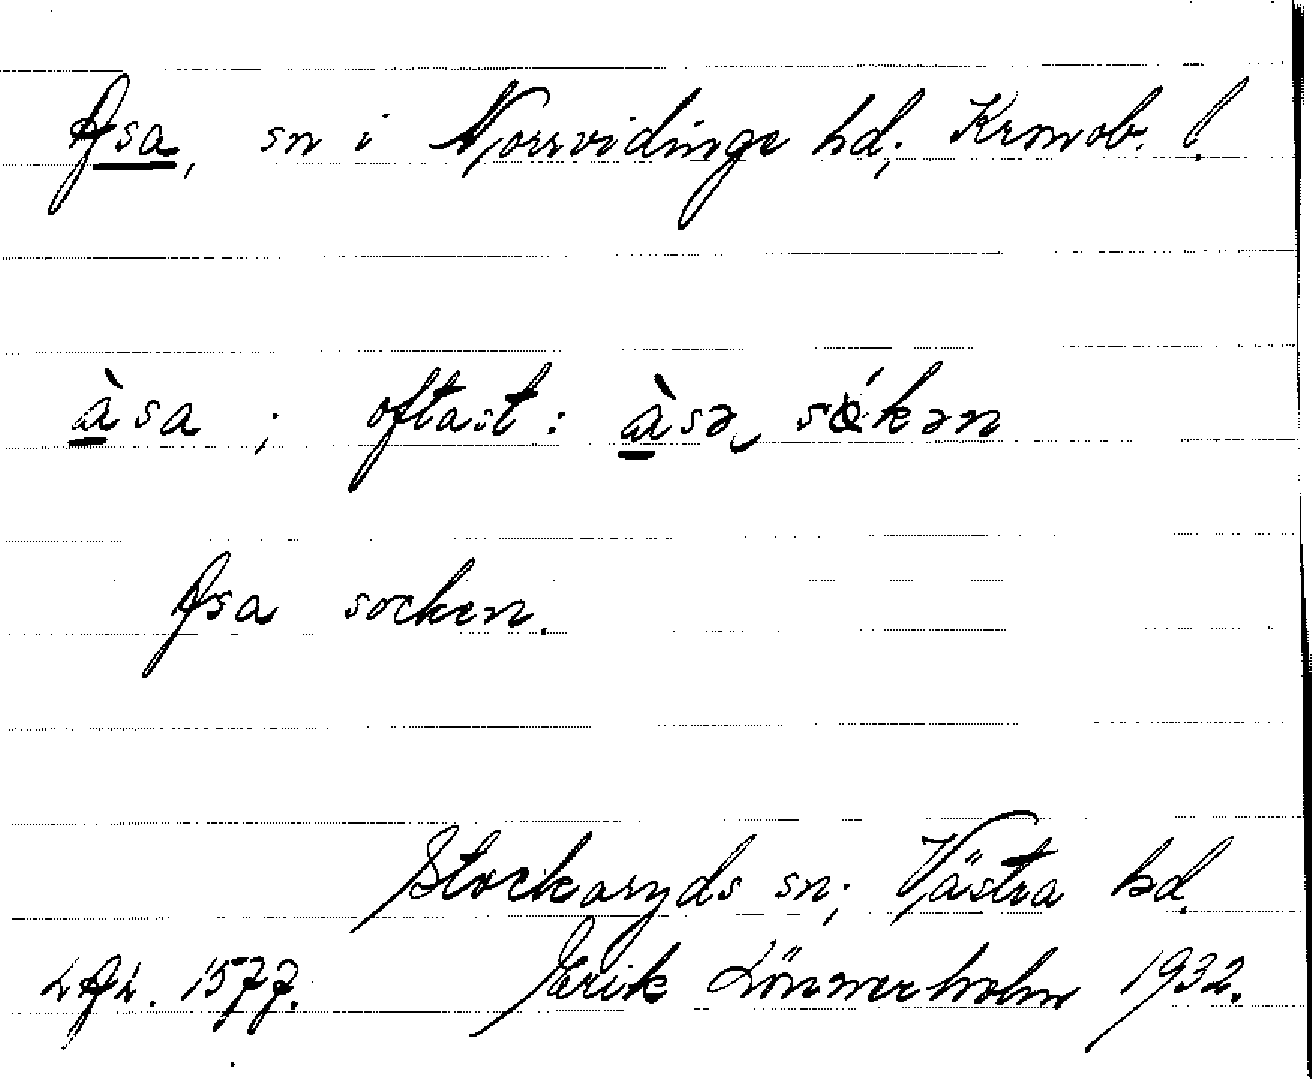 Asa, sn i Norrvidinge hd; Kronob. l.
àsa ; oftast: àsə sókən
Asa socken.
Stockaryds sn; Västra hd.
LAL. 1577. Erik Lönnerholm 1932.